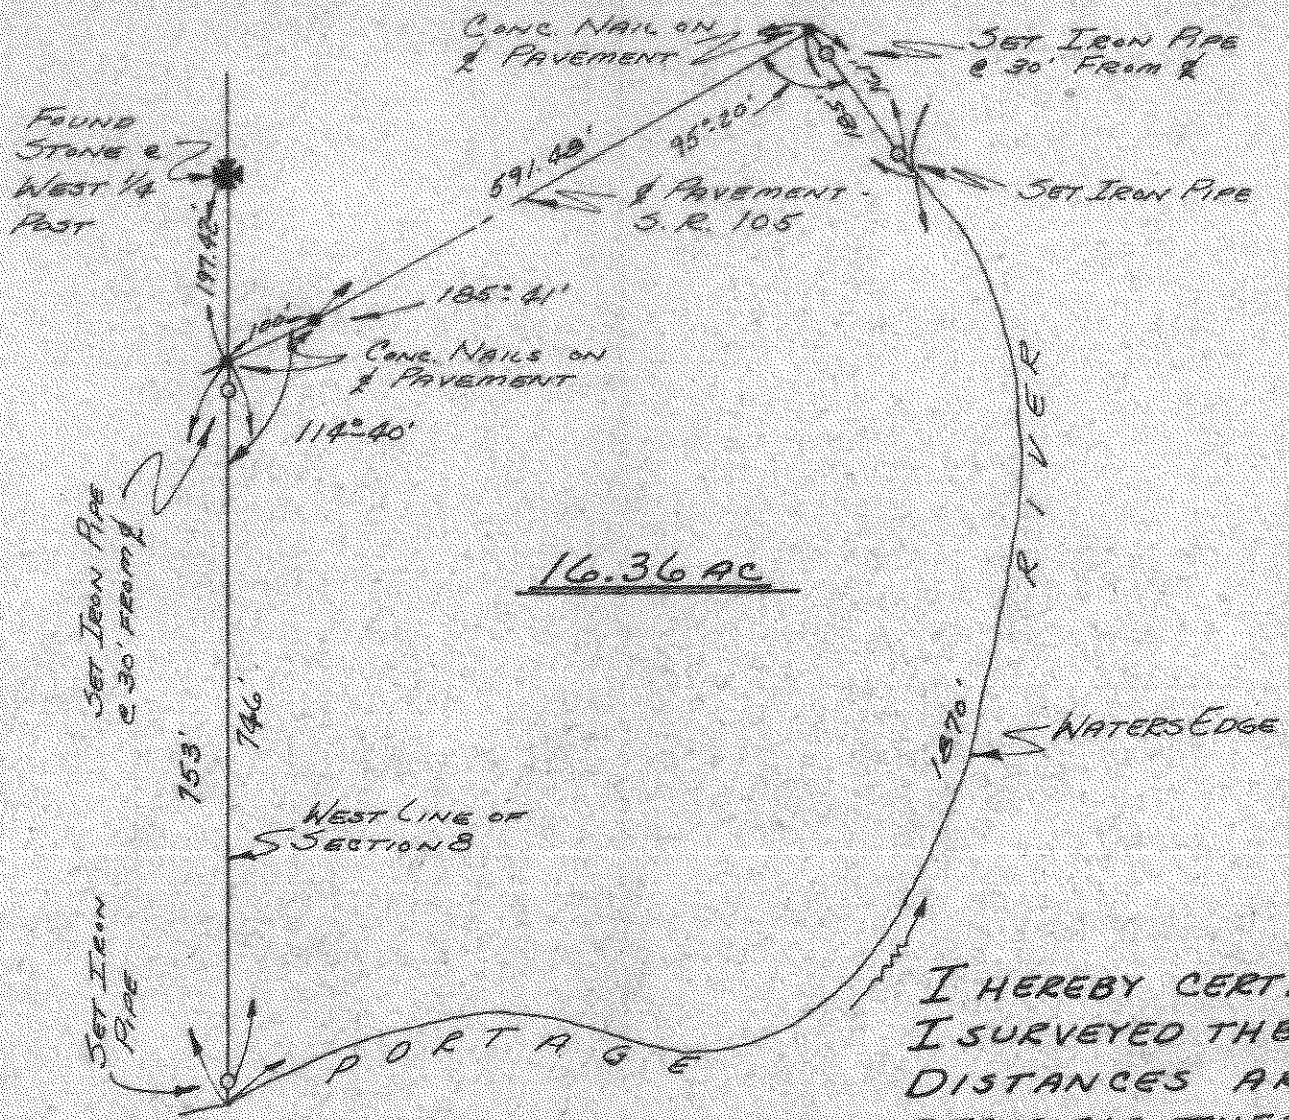 CONC. NAIL ON
℄ PAVEMENT
SET IRON PIPE
@ 30' FROM ℄
FOUND
STONE @
WEST 1/4
POST
591.48'
95°-20'
185'
SET IRON PIPE
℄ PAVEMENT -
S. R. 105
197.42'
100'
185°-41'
CONC. NAILS ON
℄ PAVEMENT
114°-40'
SET IRON PIPE
@ 30' FROM ℄
16.36 AC
RIVER
753'
746'
1870'
WATERS EDGE
WEST LINE OF
SECTION 8
SET IRON
PIPE
PORTAGE
I HEREBY CERT
I SURVEYED THE
DISTANCES AN